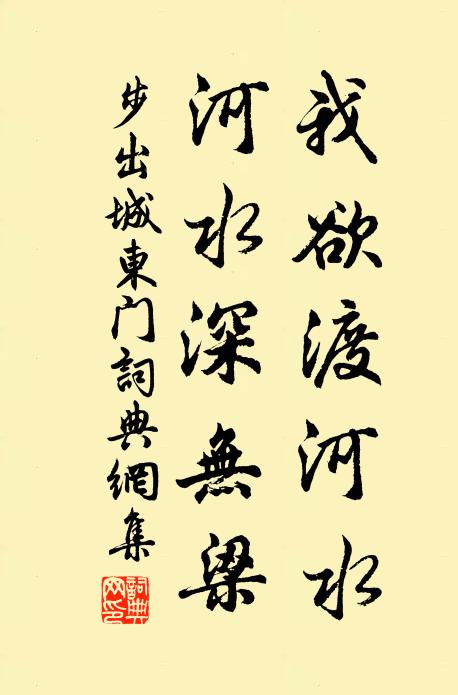 我欲渡河水
河水深無梁
步出城東門詞典網集
詞典網印